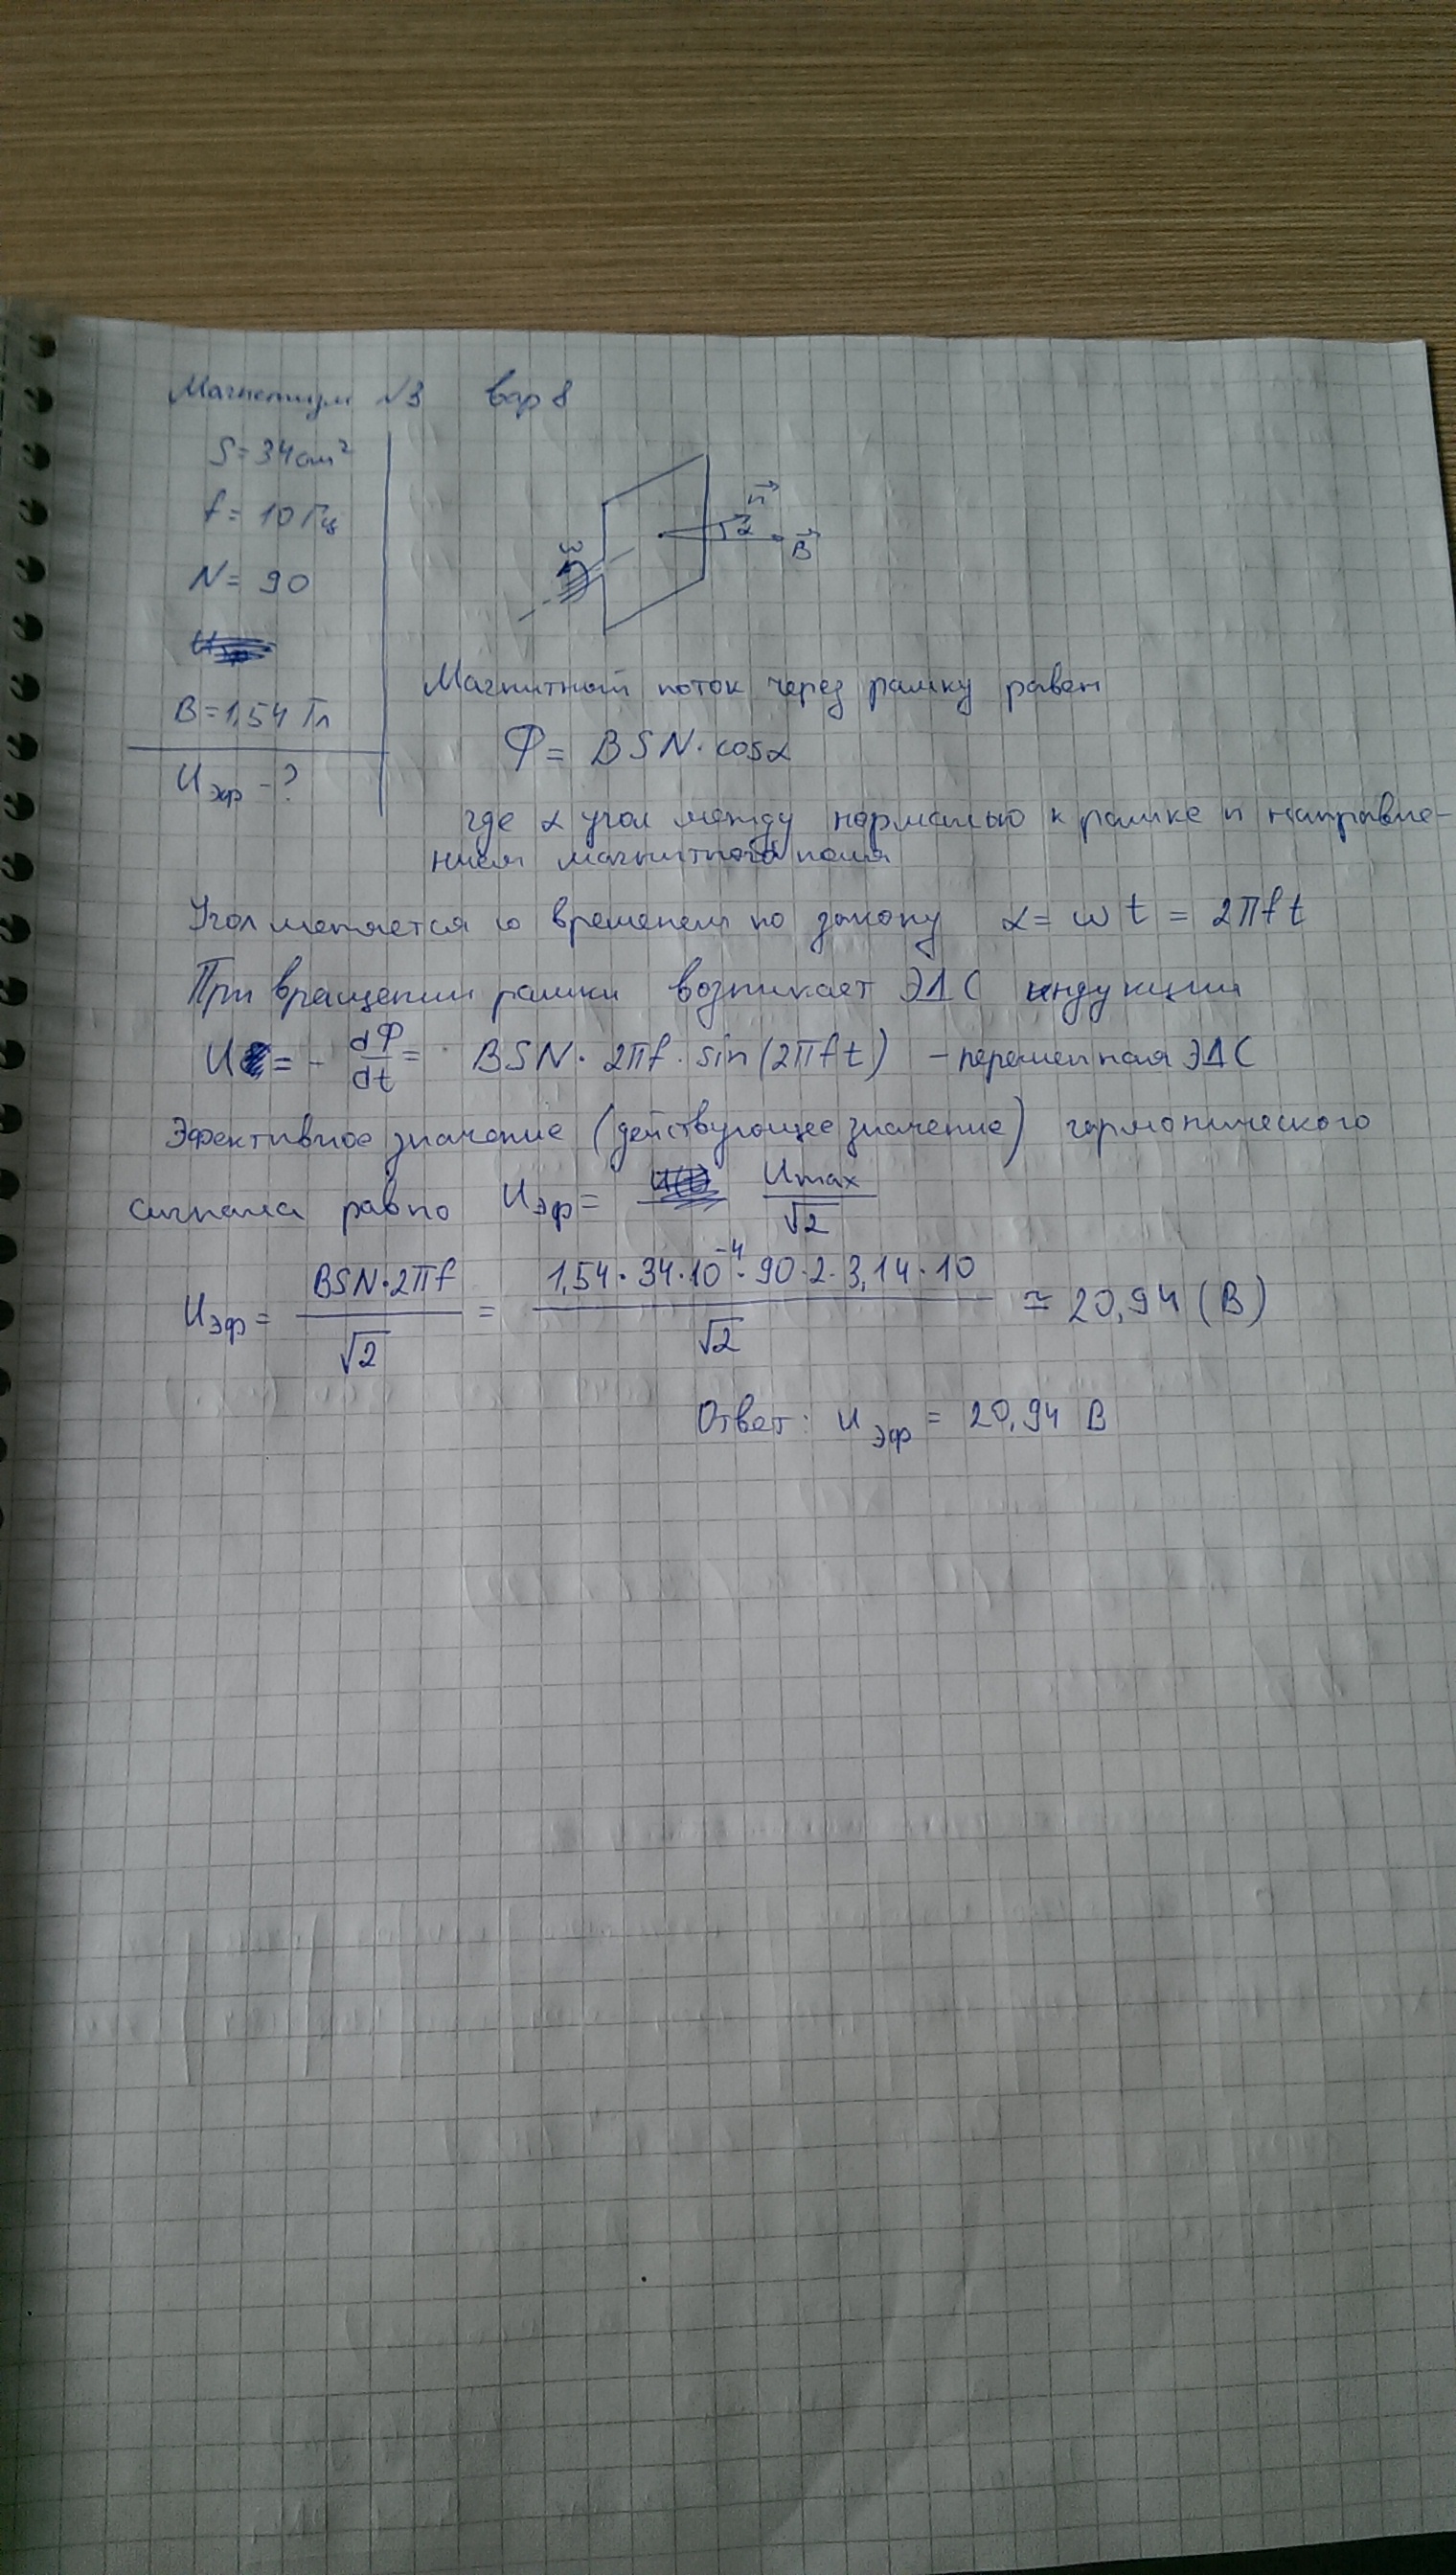 Магнетизм №3 вар 8
S = 34 см²
f = 10 Гц
N = 90
B = 1,54 Тл
Uэф - ?
ω n⃗ α B⃗
Магнитный поток через рамку равен
Φ = BSN · cosα
где α угол между нормалью к рамке и направле-
нием магнитного поля
Угол меняется со временем по закону α = ωt = 2πft
При вращении рамки возникает ЭДС индукции
U = - dΦ/dt = BSN · 2πf · sin(2πft) - переменная ЭДС
Эфективное значение (действующее значение) гармонического
сигнала равно Uэф = Umax/√2
Uэф = BSN·2πf/√2 = 1,54 · 34 · 10⁻⁴ · 90 · 2 · 3,14 · 10/√2 ≃ 20,94 (В)
Ответ: Uэф = 20,94 В